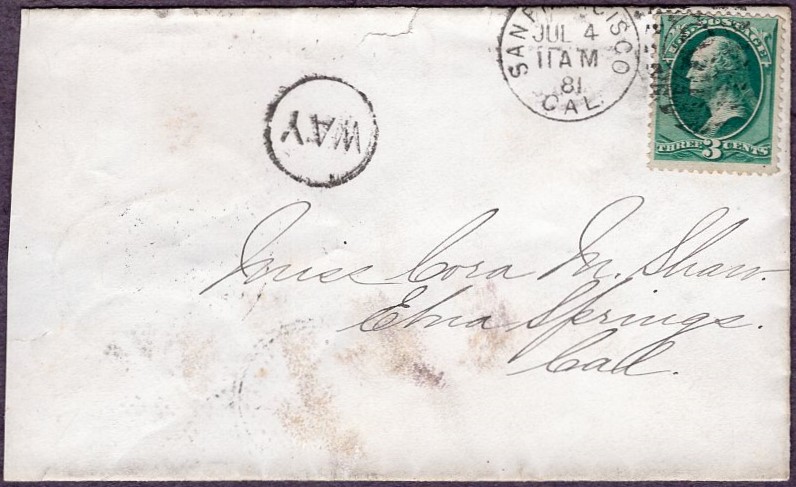 SAN FRANCISCO
JUL 4
11 AM
81
CAL.
U.S. POSTAGE
THREE 3 CENTS
WAY
Miss Cora M. Shaw.
Etna Springs.
Cal.